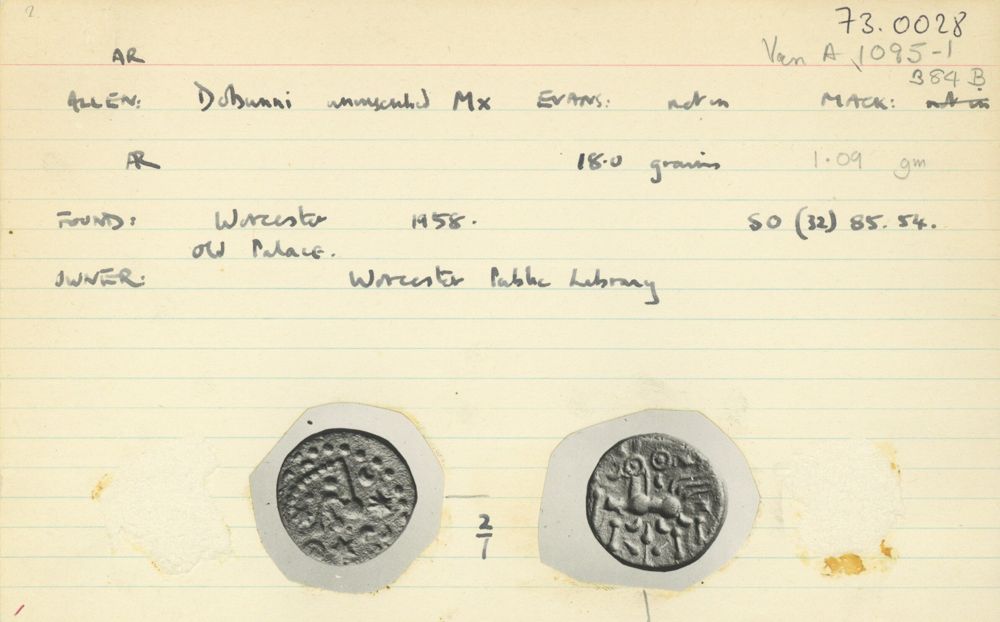 73.0028
AR Van A 1095-1
384 B
ALLEN: Dobunni uninscribed Mx EVANS: not in MACK: not in
AR 18.0 grains 1.09 gm
FOUND: Worcester 1958. SO (32) 85. 54.
Old Palace.
OWNER: Worcester Public Library
2
1